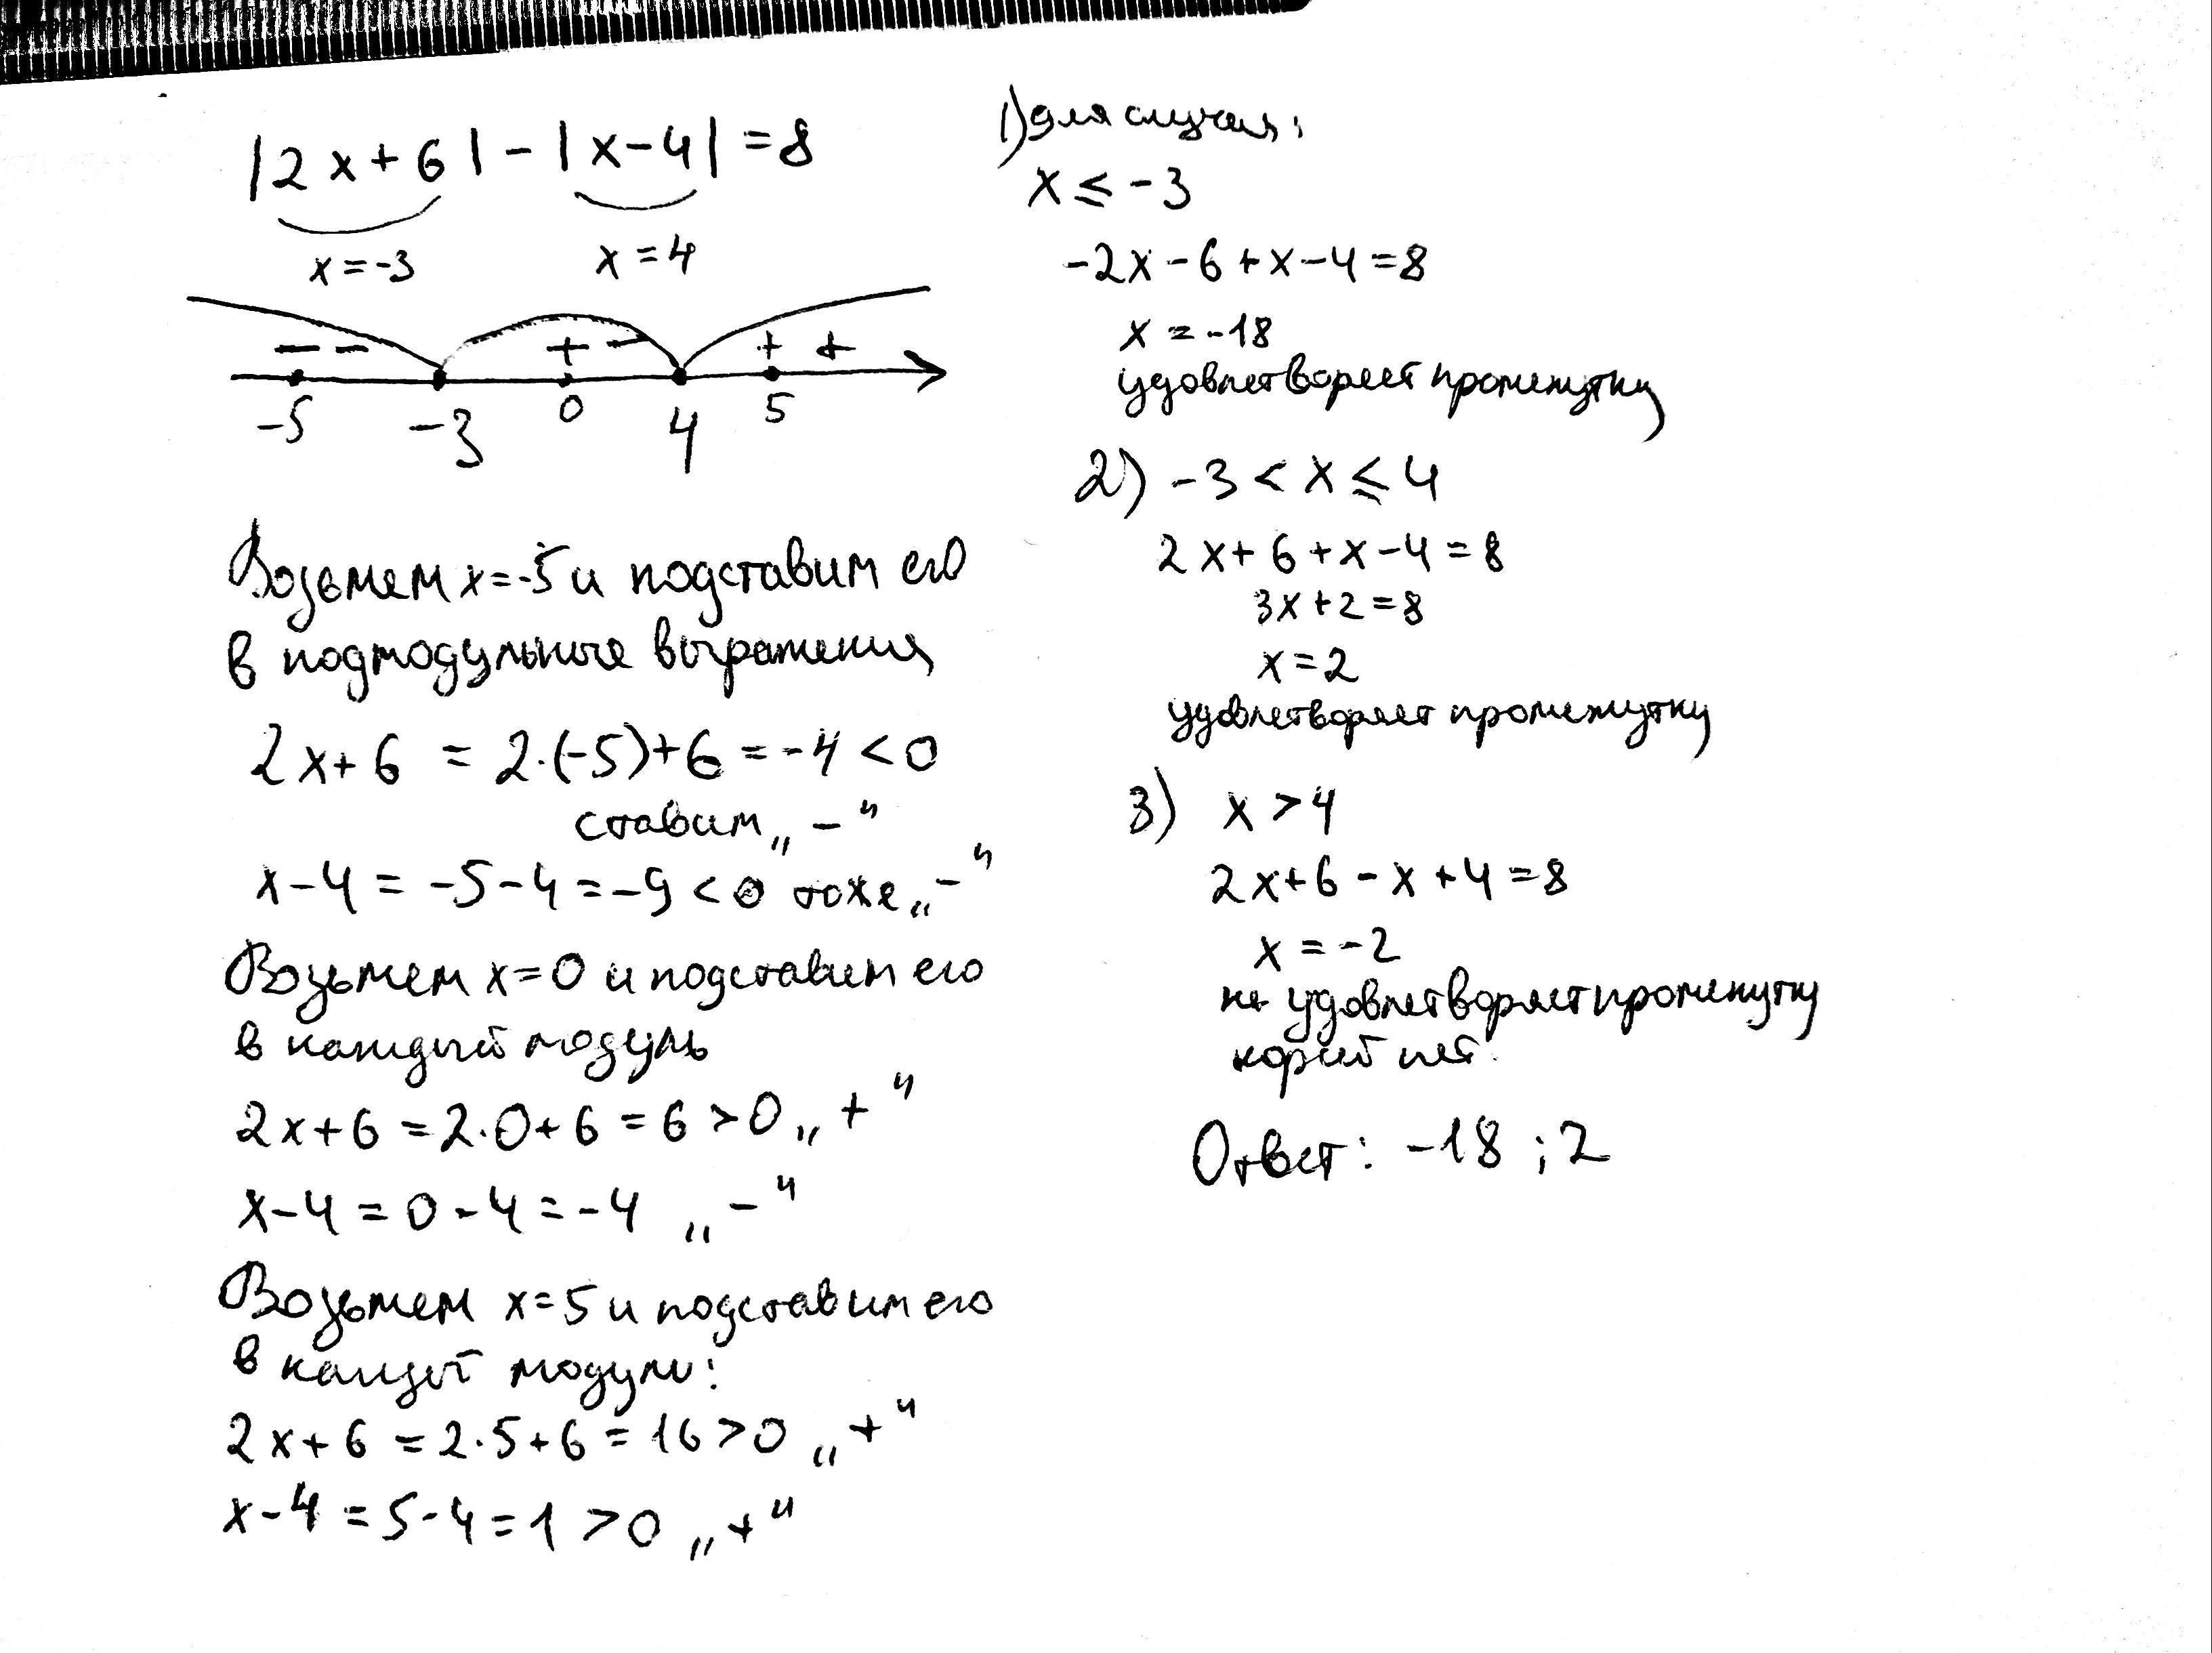 |2x+6|-|x-4|=8
x=-3 x=4
-- +- ++
-5 -3 0 4 5
Возьмем x=-5 и подставим его
в подмодульные выражения
2x+6 = 2·(-5)+6=-4<0
ставим „-“
x-4=-5-4=-9<0 тоже „-“
Возьмем x=0 и подставим его
в каждый модуль
2x+6=2·0+6=6>0 „+“
x-4=0-4=-4 „-“
Возьмем x=5 и подставим его
в модуль:
2x+6=2·5+6=16>0 „+“
x-4=5-4=1>0 „+“
1) для случая:
x≤-3
-2x-6+x-4=8
x=-18
удовлетворяет промежутку
2) -3<x≤4
2x+6+x-4=8
3x+2=8
x=2
удовлетворяет промежутку
3) x>4
2x+6-x+4=8
x=-2
не удовлетворяет промежутку
корней нет.
Ответ: -18; 2